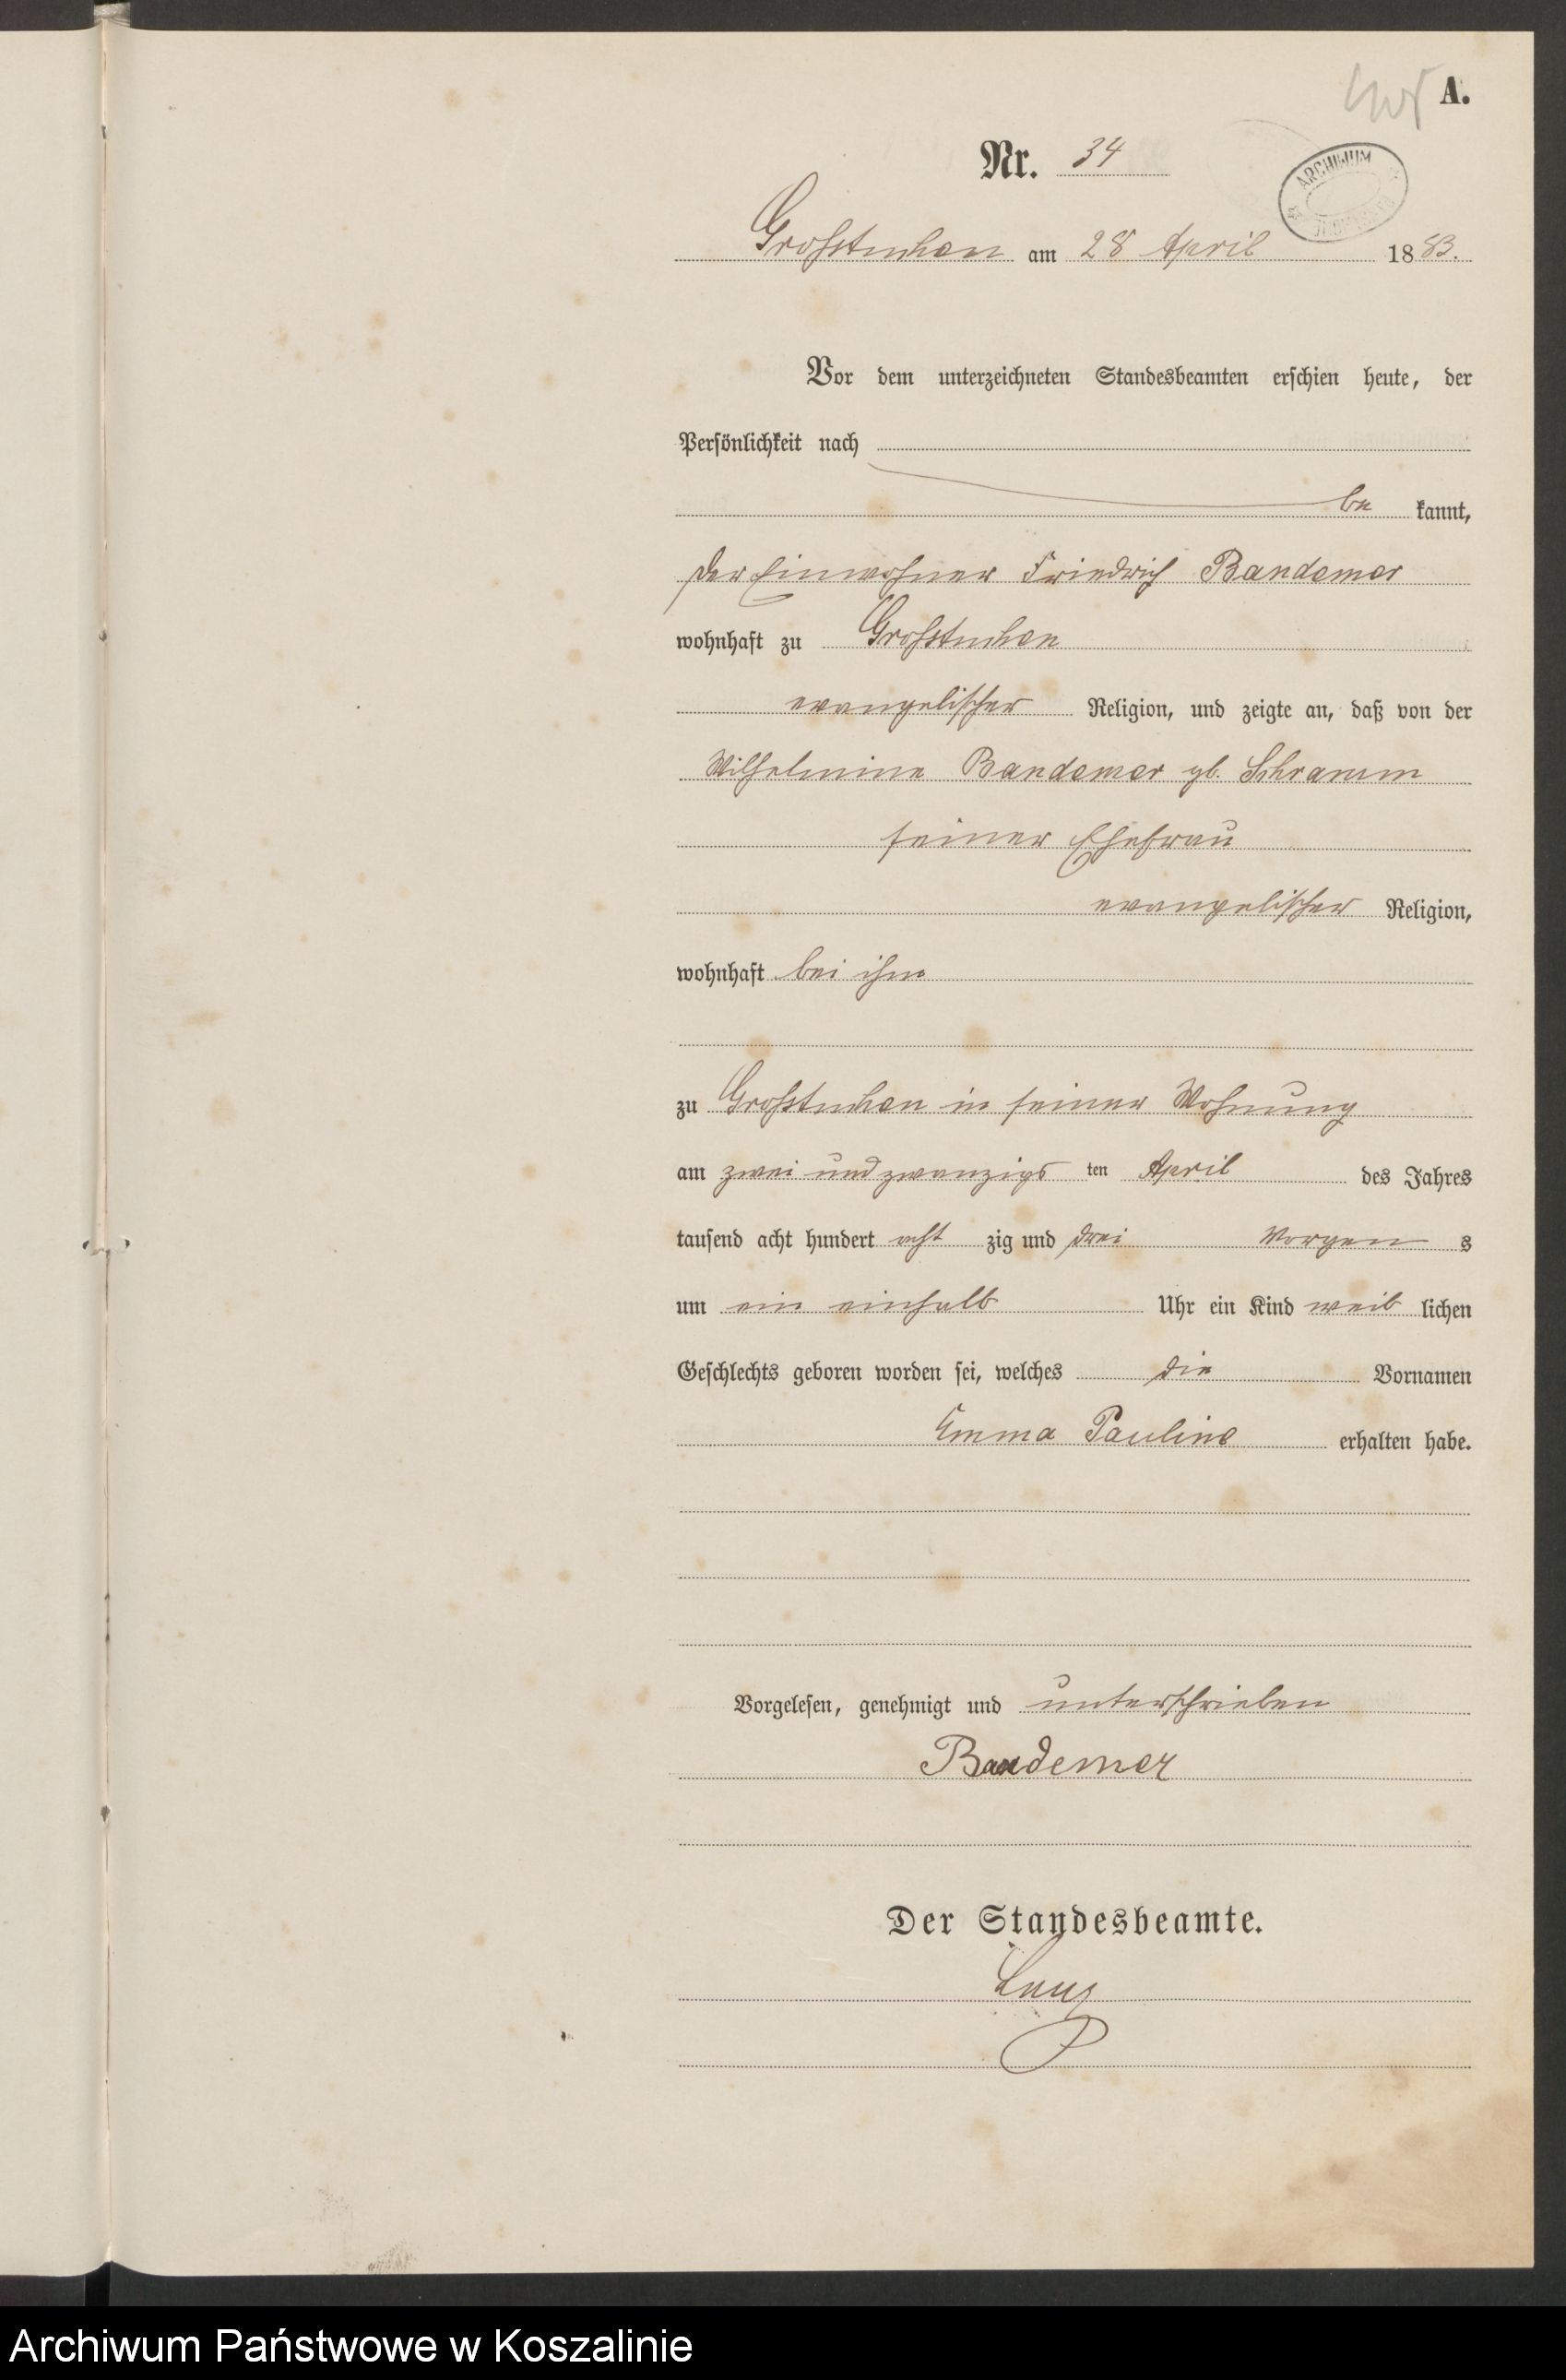 A.
Nr. 34
ARCHIWUM
Großtuchen am 28 April 1883.
Vor dem unterzeichneten Standesbeamten erschien heute, der
Persönlichkeit nach
be kannt,
der Einwohner Friedrich Bandemer
wohnhaft zu Großtuchen
evangelischer Religion, und zeigte an, daß von der
Wilhelmine Bandemer gb. Schramm
seiner Ehefrau
evangelischer Religion,
wohnhaft bei ihm
zu Großtuchen in seiner Wohnung
am zwei und zwanzigs ten April des Jahres
tausend acht hundert acht zig und drei Morgen s
um ein einhalb Uhr ein Kind weib lichen
Geschlechts geboren worden sei, welches die Vornamen
Emma Pauline erhalten habe.
Vorgelesen, genehmigt und unterschrieben
Bandemer
Der Standesbeamte.
Archiwum Państwowe w Koszalinie